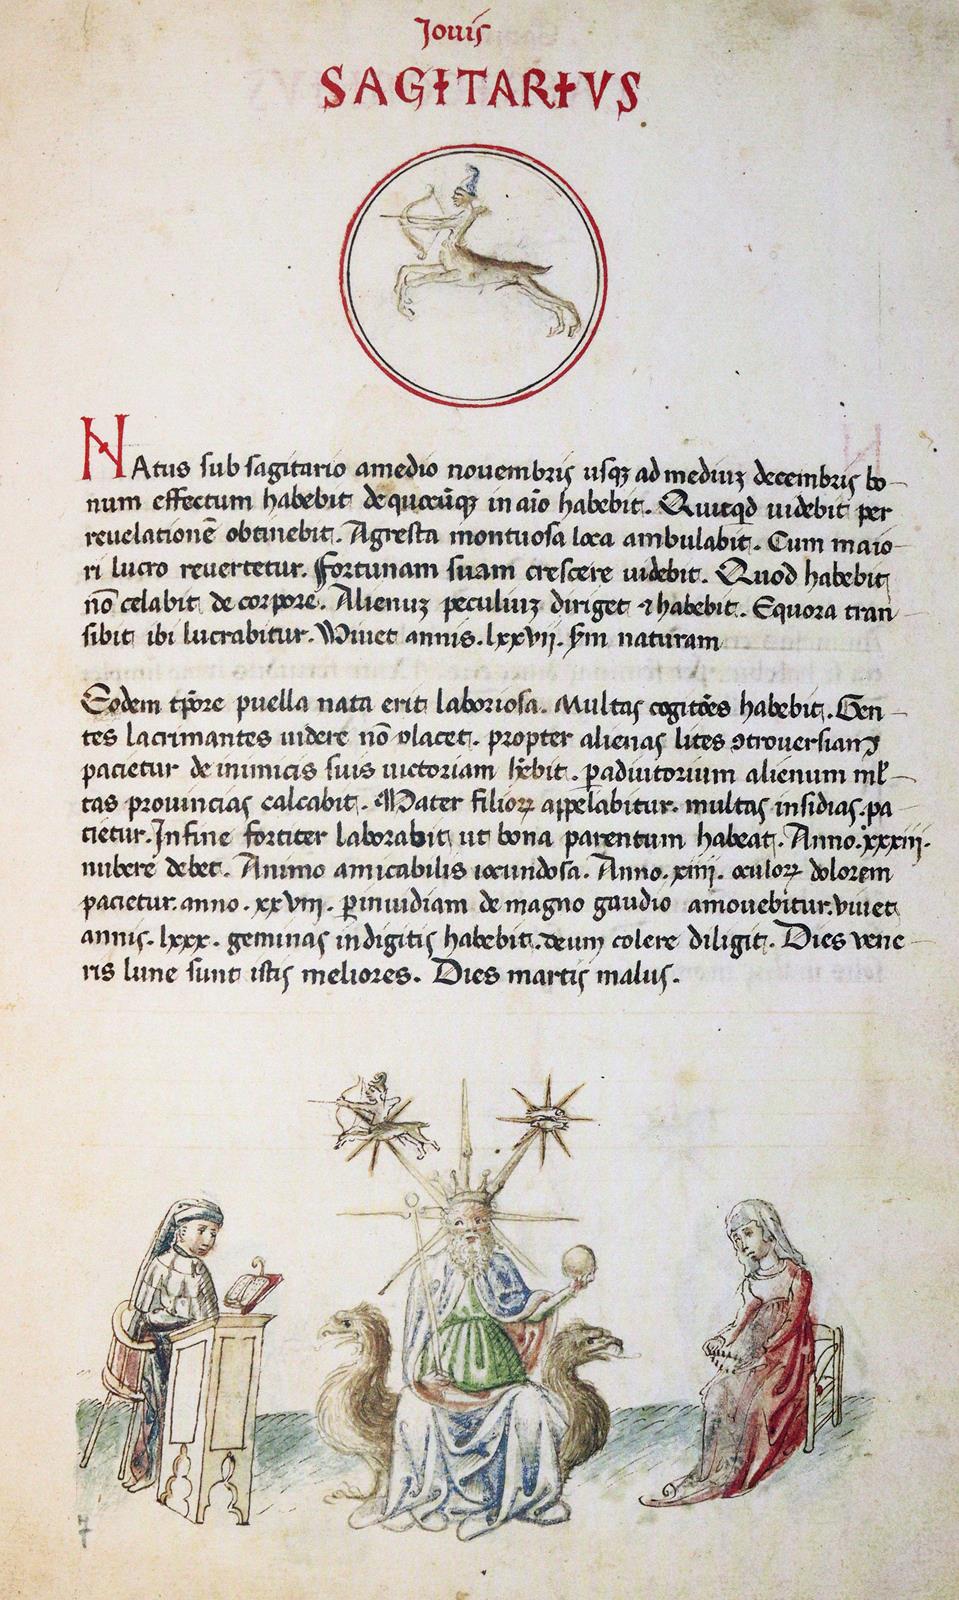 Jouis
SAGITARIVS
NAtus sub sagitario amedio nouembris usqꝫ ad mediuꝫ decembris bo-
num effectum habebit de quocūqꝫ in aīo habebit. Quicqd uidebit per
reuelationē obtinebit. Agresta montuosa loca ambulabit. Cum maio-
ri lucro reuertetur. Fortunam suam crescere uidebit. Quod habebit
nō celabit de corpore. Alienuꝫ peculiuꝫ diriget ⁊ habebit. Equora tran-
sibit ibi lucrabitur. Viuet annis. lxxvij. sm̄ naturam
Eodem tp̄ore puella nata erit laboriosa. Multas cogitōēs habebit. Gen-
tes lacrimantes uidere nō placet. propter alienas lites ꝯtrouersiam
pacietur de inimicis suis uictoriam hēbit. ꝑ adiutorium alienum ml̄-
tas prouincias calcabit. Mater filioꝝ appelabitur. multas insidias. pa
cietur. In fine fortiter laborabit ut bona parentum habeat. Anno. xxxiij.
nubere debet. Animo amicabilis iocundosa. Anno. xiiij. oculoꝝ dolorem
pacietur. anno. xxviij. ꝑ inuidiam de magno gaudio amouebitur. uiuet
annis. lxxx. geminas in digitis habebit. deum colere diligit. Dies vene-
ris lune sunt istis meliores. Dies martis malus.
7